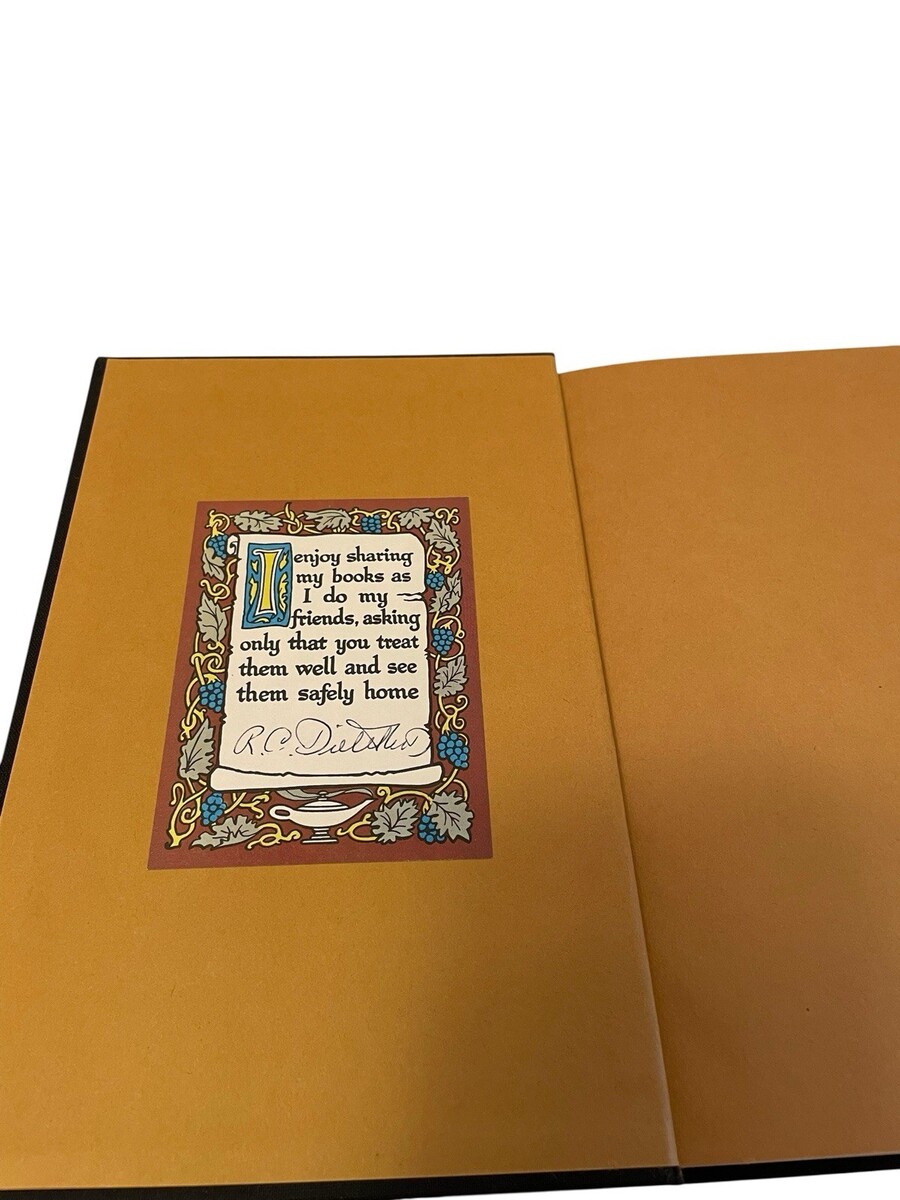 I enjoy sharing
my books as
I do my
friends, asking
only that you treat
them well and see
them safely home
R. C.